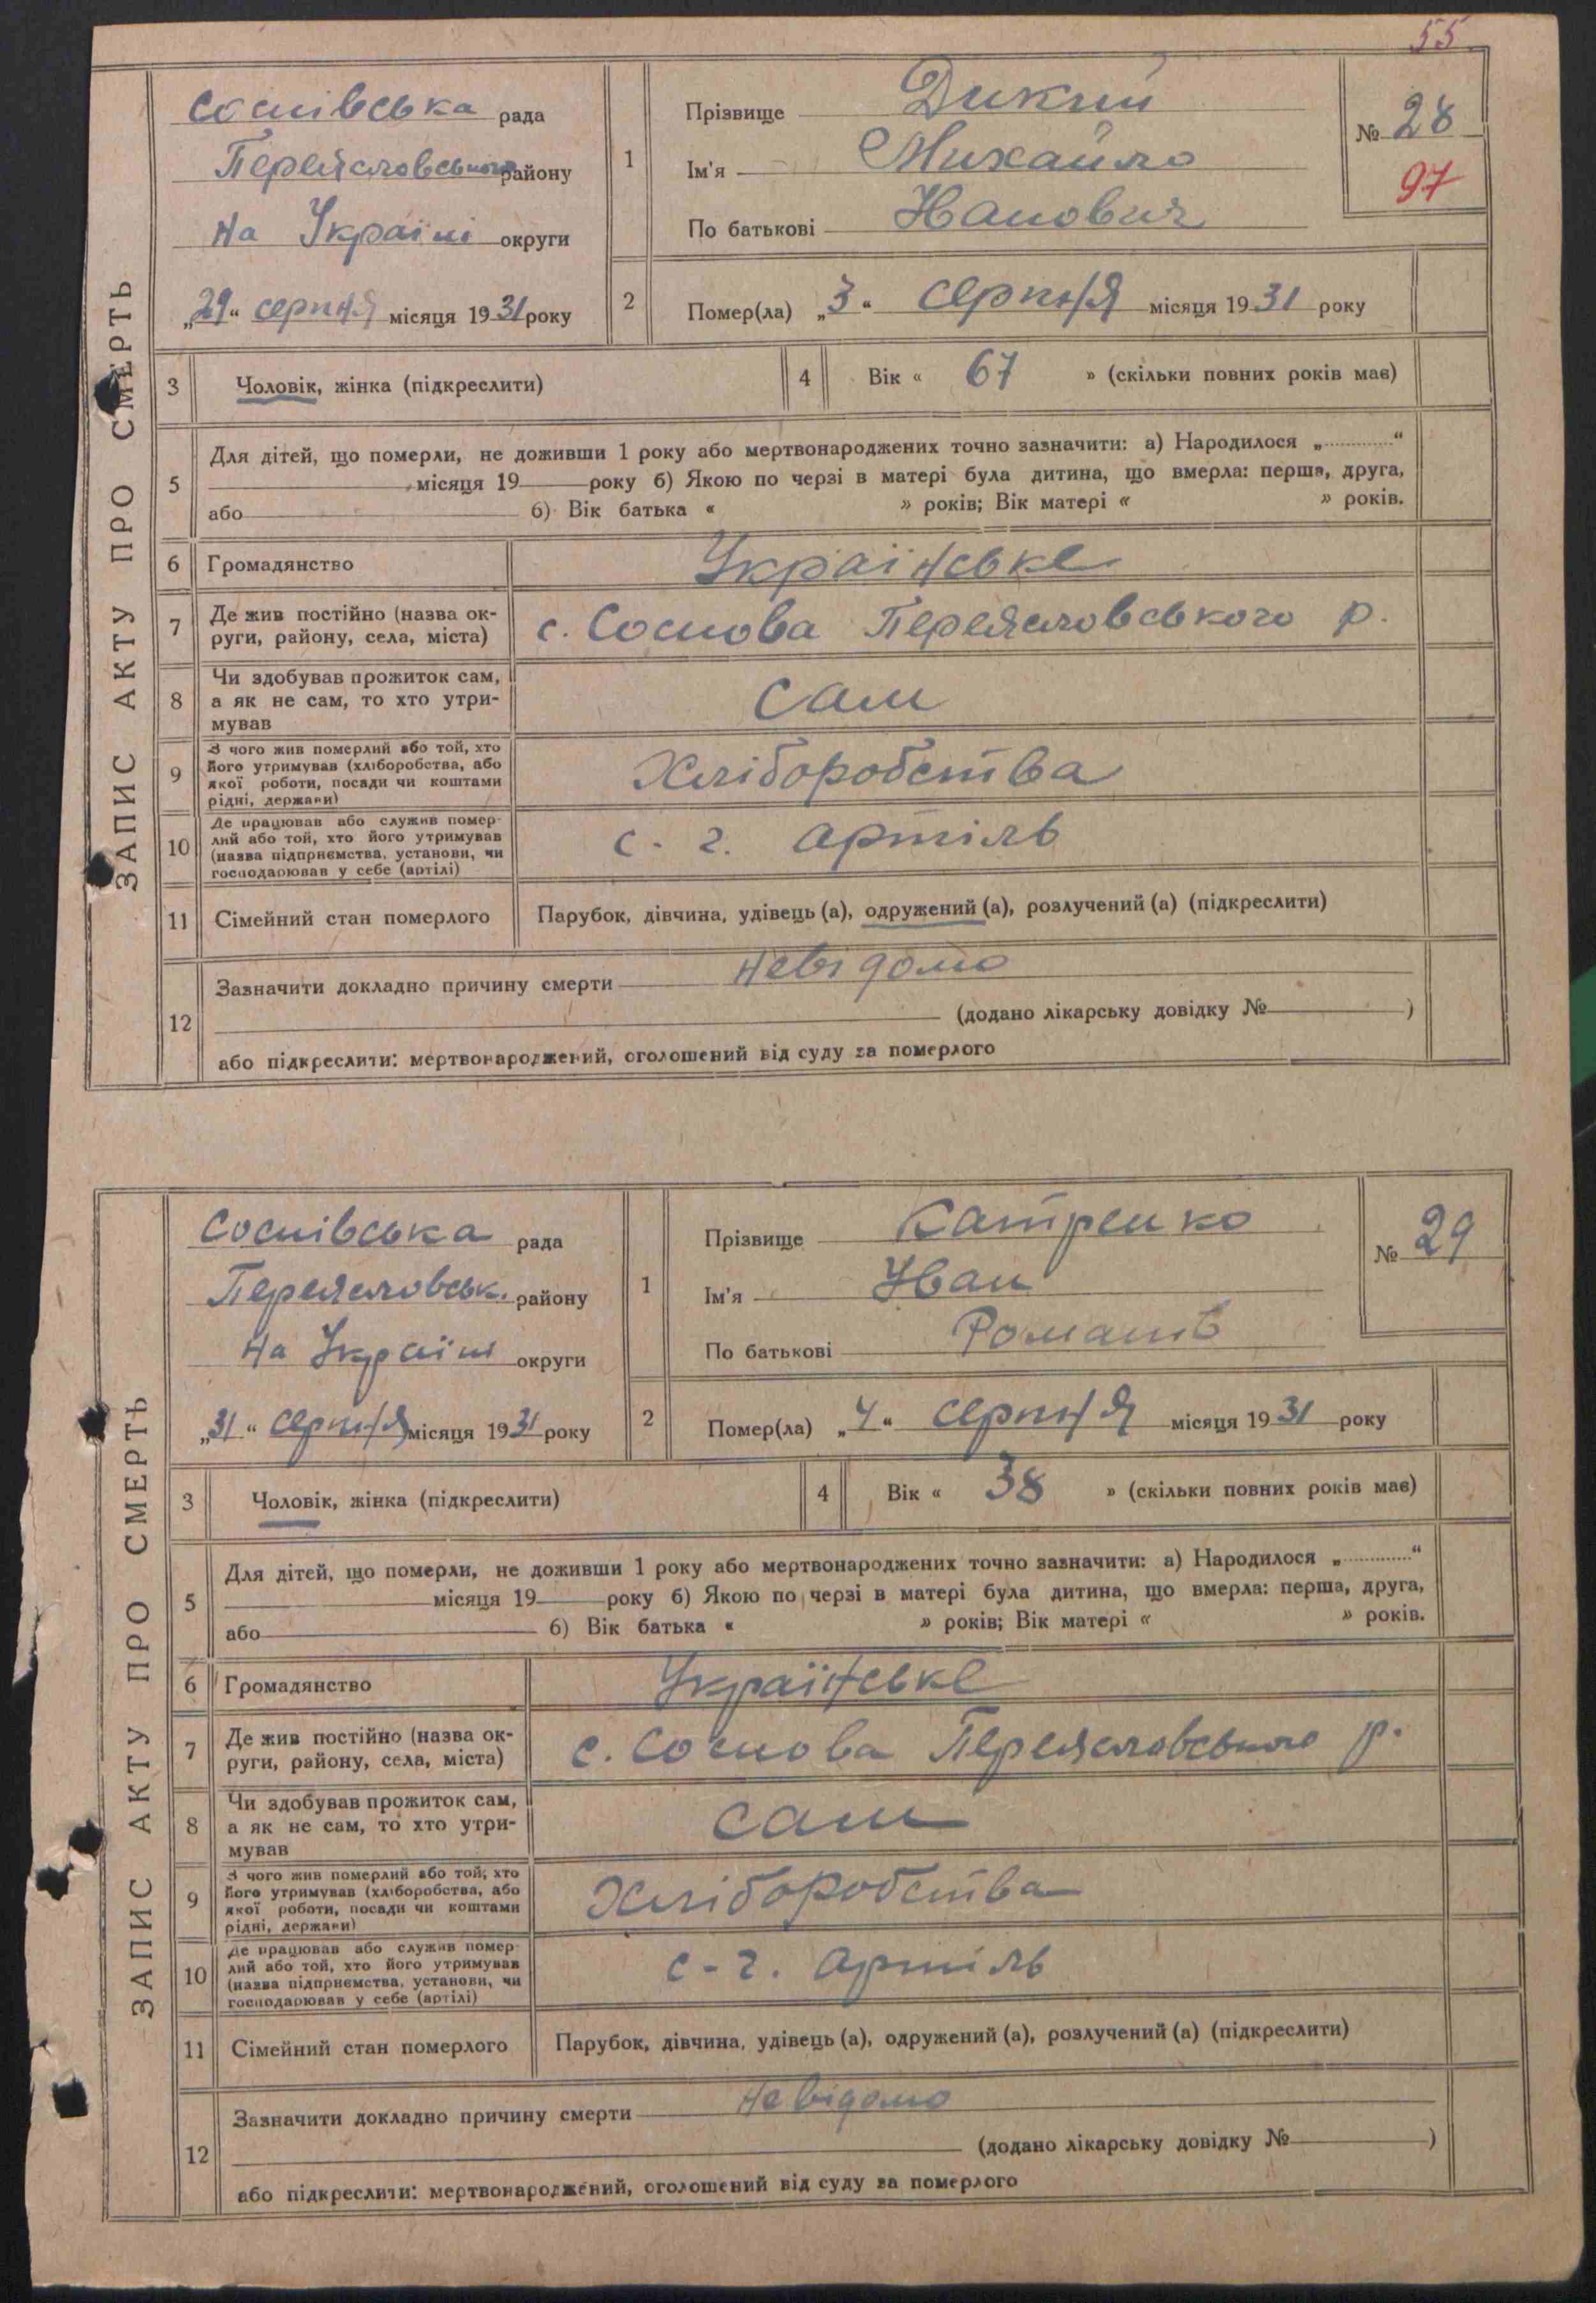 55
ЗАПИС АКТУ ПРО СМЕРТЬ
Соснівська рада
Переяславського району
На Україні округи
„29“ серпня місяця 1931 року
1 Прізвище Дикий
Ім'я Михайло
По батькові Иванович
№ 28
97
2 Помер(ла) „3“ серпня місяця 1931 року
3 Чоловік, жінка (підкреслити)
4 Вік « 67 » (скільки повних років має)
5 Для дітей, що померли, не доживши 1 року або мертвонароджених точно зазначити: а) Народилося „ “
місяця 19 року б) Якою по черзі в матері була дитина, що вмерла: перша, друга,
або б) Вік батька « » років; Вік матері « » років.
6 Громадянство Українське
7 Де жив постійно (назва ок-
руги, району, села, міста) с. Соснова Переяславського р.
8 Чи здобував прожиток сам,
а як не сам, то хто утри-
мував сам
9 З чого жив померлий або той, хто
його утримував (хліборобства, або
якої роботи, посади чи коштами
рідні, держави) Хліборобства
10 Де працював або служив помер-
лий або той, хто його утримував
(назва підприємства, установи, чи
господарював у себе (артілі) с. г. артіль
11 Сімейний стан померлого Парубок, дівчина, удівець (а), одружений (а), розлучений (а) (підкреслити)
12 Зазначити докладно причину смерти невідомо
(додано лікарську довідку № )
або підкреслити: мертвонароджений, оголошений від суду за померлого
ЗАПИС АКТУ ПРО СМЕРТЬ
Соснівська рада
Переяславськ. району
На Україні округи
„31“ серпня місяця 1931 року
1 Прізвище Катренко
Ім'я Иван
По батькові Романів
№ 29
2 Помер(ла) „4“ серпня місяця 1931 року
3 Чоловік, жінка (підкреслити)
4 Вік « 38 » (скільки повних років має)
5 Для дітей, що померли, не доживши 1 року або мертвонароджених точно зазначити: а) Народилося „ “
місяця 19 року б) Якою по черзі в матері була дитина, що вмерла: перша, друга,
або б) Вік батька « » років; Вік матері « » років.
6 Громадянство Українське
7 Де жив постійно (назва ок-
руги, району, села, міста) с. Соснова Переяславського р.
8 Чи здобував прожиток сам,
а як не сам, то хто утри-
мував сам
9 З чого жив померлий або той, хто
його утримував (хліборобства, або
якої роботи, посади чи коштами
рідні, держави) Хліборобства
10 Де працював або служив помер-
лий або той, хто його утримував
(назва підприємства, установи, чи
господарював у себе (артілі) с-г. артіль
11 Сімейний стан померлого Парубок, дівчина, удівець (а), одружений (а), розлучений (а) (підкреслити)
12 Зазначити докладно причину смерти невідомо
(додано лікарську довідку № )
або підкреслити: мертвонароджений, оголошений від суду за померлого